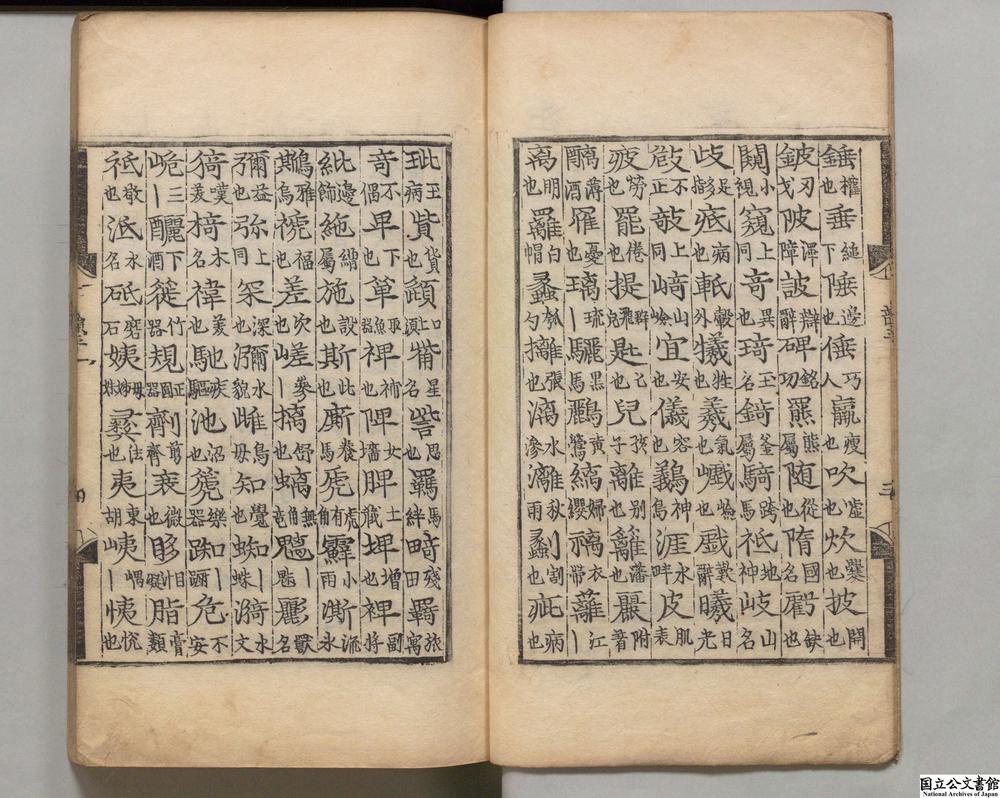 錘權也垂縋下陲邊也倕巧人羸瘦也吹虛也炊爨也披開也
鈹刃戈陂澤障詖辯辭碑銘功羆熊屬随從也隋國名虧缺也
闚小視窺上同奇異也琦玉名錡釜屬騎跨馬祇地神岐山名
歧足指疧病也軝轂外犧牲也羲氣也巇嶮也戲歎辭曦日光
攲不正敧上同崎山嶮宜安也儀容也鸃神鳥涯水畔皮肌表
疲勞也罷倦也提群飛皃匙匕也兒孩子離別也籬藩也麗附著
醨薄酒罹憂也璃琉丨驪黑馬鸝黃鶯縭婦纓褵衣帶蘺江丨
离明也䍦白帽蠡瓠勺摛張也漓水滲灕秋雨劙割也疵病也
三
玼玉病貲貨也頾口上須觜星名訾思也羇馬絆畸殘田羈旅寓
奇不偶卑下也箄取魚器裨補也陴女墻脾土藏埤增也裨副將
紕邊飾絁繒屬施設也斯此也廝養馬虒虎有角小雨凘流氷
雅烏褫福也差次也嵯參丨摛舒也螭無角竜魑丨魅獸名
彌益也弥上同冞深也瀰水貌雌鳥母知覺也蜘丨蛛漪水文
猗嘆美椅木名禕美也馳疾驅池沼也篪樂器踟丨躕危不安
峗三丨釃下酒簁竹器規正圓器劑剪齊衰微也眵目汁凝脂膏類
祗敬也泜水名砥磨石姨母姊妹彝法也夷東胡峓嵎丨恞悦也
国立公文書館
National Archives of Japan